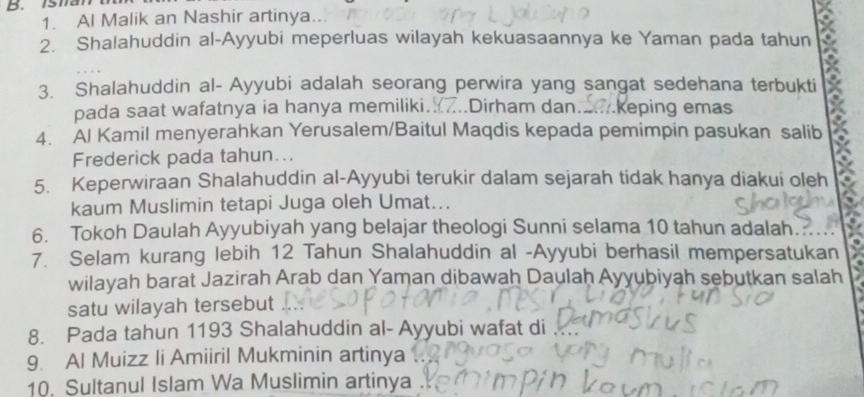 B.
1. Al Malik an Nashir artinya...
2. Shalahuddin al-Ayyubi meperluas wilayah kekuasaannya ke Yaman pada tahun
....
3. Shalahuddin al- Ayyubi adalah seorang perwira yang sangat sedehana terbukti
pada saat wafatnya ia hanya memiliki...47...Dirham dan......keping emas
4. Al Kamil menyerahkan Yerusalem/Baitul Maqdis kepada pemimpin pasukan salib
Frederick pada tahun...
5. Keperwiraan Shalahuddin al-Ayyubi terukir dalam sejarah tidak hanya diakui oleh
kaum Muslimin tetapi Juga oleh Umat...
6. Tokoh Daulah Ayyubiyah yang belajar theologi Sunni selama 10 tahun adalah......
7. Selam kurang lebih 12 Tahun Shalahuddin al -Ayyubi berhasil mempersatukan
wilayah barat Jazirah Arab dan Yaman dibawah Daulah Ayyubiyah sebutkan salah
satu wilayah tersebut .... Mesopotamia, Mesir, Libya, tunsia
8. Pada tahun 1193 Shalahuddin al- Ayyubi wafat di .... Damaskus
9. Al Muizz li Amiiril Mukminin artinya .... Penguasa yang mulia
10. Sultanul Islam Wa Muslimin artinya .. Pemimpin kaum islam